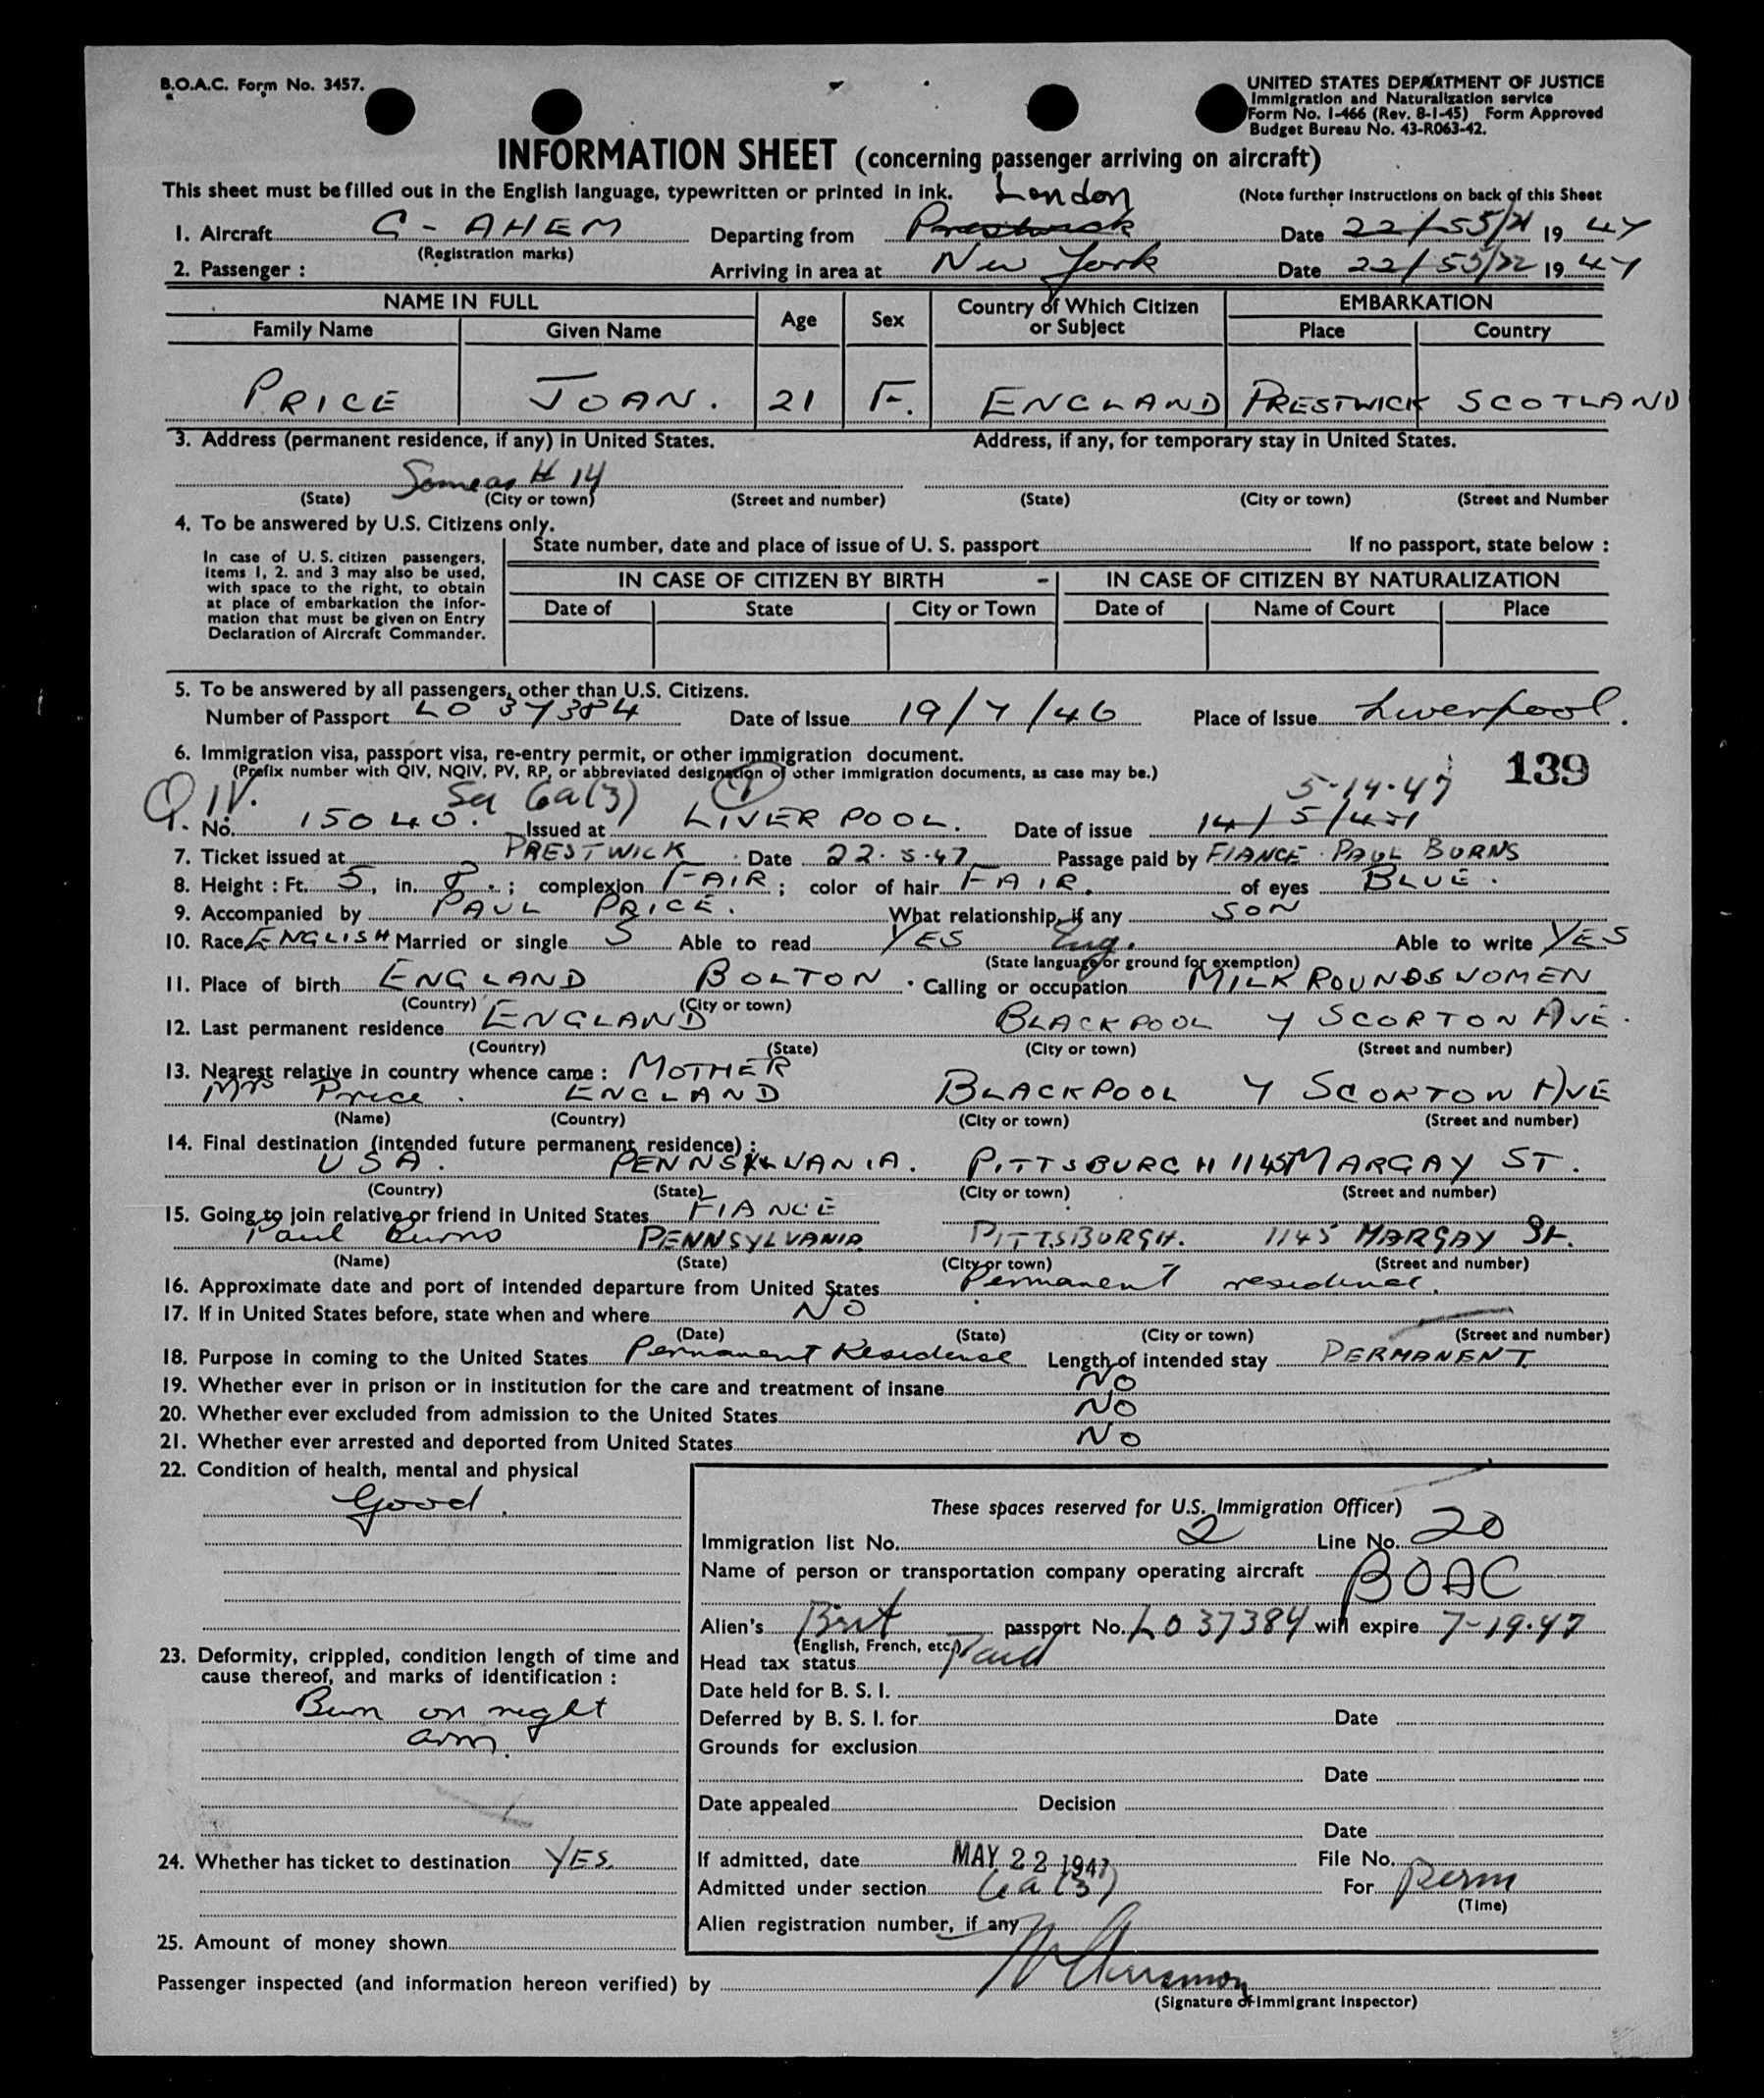 B.O.A.C. Form No. 3457.
UNITED STATES DEPARTMENT OF JUSTICE
Immigration and Naturalization service
Form No. I-466 (Rev. 8-1-45) Form Approved
Budget Bureau No. 43-R063-42.
INFORMATION SHEET (concerning passenger arriving on aircraft)
This sheet must be filled out in the English language, typewritten or printed in ink. London (Note further instructions on back of this Sheet
1. Aircraft G - AHEM Departing from Prestwick Date 22/5 5/21 19 47
(Registration marks)
2. Passenger : Arriving in area at New York Date 22/5 5/22 19 47
NAME IN FULL Age Sex Country of Which Citizen or Subject EMBARKATION
Family Name Given Name Place Country
PRICE JOAN. 21 F. ENGLAND PRESTWICK SCOTLAND
3. Address (permanent residence, if any) in United States. Address, if any, for temporary stay in United States.
Same as # 14
(State) (City or town) (Street and number) (State) (City or town) (Street and Number
4. To be answered by U.S. Citizens only.
In case of U. S. citizen passengers, items 1, 2. and 3 may also be used, with space to the right, to obtain at place of embarkation the information that must be given on Entry Declaration of Aircraft Commander.
State number, date and place of issue of U. S. passport If no passport, state below :
IN CASE OF CITIZEN BY BIRTH - IN CASE OF CITIZEN BY NATURALIZATION
Date of State City or Town Date of Name of Court Place
5. To be answered by all passengers, other than U.S. Citizens.
Number of Passport LO 37384 Date of Issue 19/7/46 Place of Issue Liverpool.
6. Immigration visa, passport visa, re-entry permit, or other immigration document.
(Prefix number with QIV, NQIV, PV, RP, or abbreviated designation of other immigration documents, as case may be.) 139
QIV. 6a(3) 5-14-47
No. 15040. Issued at LIVERPOOL. Date of issue 14/5/47
7. Ticket issued at PRESTWICK Date 22.5.47 Passage paid by FIANCE PAUL BURNS
8. Height : Ft. 5, in. 8. ; complexion FAIR ; color of hair FAIR. of eyes BLUE.
9. Accompanied by PAUL PRICE. What relationship, if any SON
10. Race ENGLISH Married or single S Able to read YES Eng. Able to write YES
(State language or ground for exemption)
11. Place of birth ENGLAND BOLTON. Calling or occupation MILK ROUNDSWOMEN
(Country) (City or town)
12. Last permanent residence ENGLAND BLACKPOOL 7 SCORTON AVE.
(Country) (State) (City or town) (Street and number)
13. Nearest relative in country whence came : MOTHER
Mrs Price. ENGLAND BLACKPOOL 7 SCORTON AVE
(Name) (Country) (City or town) (Street and number)
14. Final destination (intended future permanent residence) :
USA. PENNSYLVANIA. PITTSBURGH 1145 MARGAY ST.
(Country) (State) (City or town) (Street and number)
15. Going to join relative or friend in United States FIANCE
Paul Burns PENNSYLVANIA PITTSBURGH. 1145 MARGAY St.
(Name) (State) (City or town) (Street and number)
16. Approximate date and port of intended departure from United States Permanent residence.
17. If in United States before, state when and where NO
(Date) (State) (City or town) (Street and number)
18. Purpose in coming to the United States Permanent Residence Length of intended stay PERMANENT
19. Whether ever in prison or in institution for the care and treatment of insane NO
20. Whether ever excluded from admission to the United States NO
21. Whether ever arrested and deported from United States NO
22. Condition of health, mental and physical
Good.
23. Deformity, crippled, condition length of time and cause thereof, and marks of identification :
Burn on right
arm.
24. Whether has ticket to destination YES.
25. Amount of money shown
These spaces reserved for U.S. Immigration Officer)
Immigration list No. 2 Line No. 20
Name of person or transportation company operating aircraft BOAC
Alien's Brit passport No. LO 37384 will expire 7-19-47
(English, French, etc.)
Head tax status Paid
Date held for B. S. I.
Deferred by B. S. I. for Date
Grounds for exclusion
Date
Date appealed Decision
Date
If admitted, date MAY 22 1947 File No.
Admitted under section 6a(3) For perm
(Time)
Alien registration number, if any
Passenger inspected (and information hereon verified) by
(Signature of Immigrant Inspector)